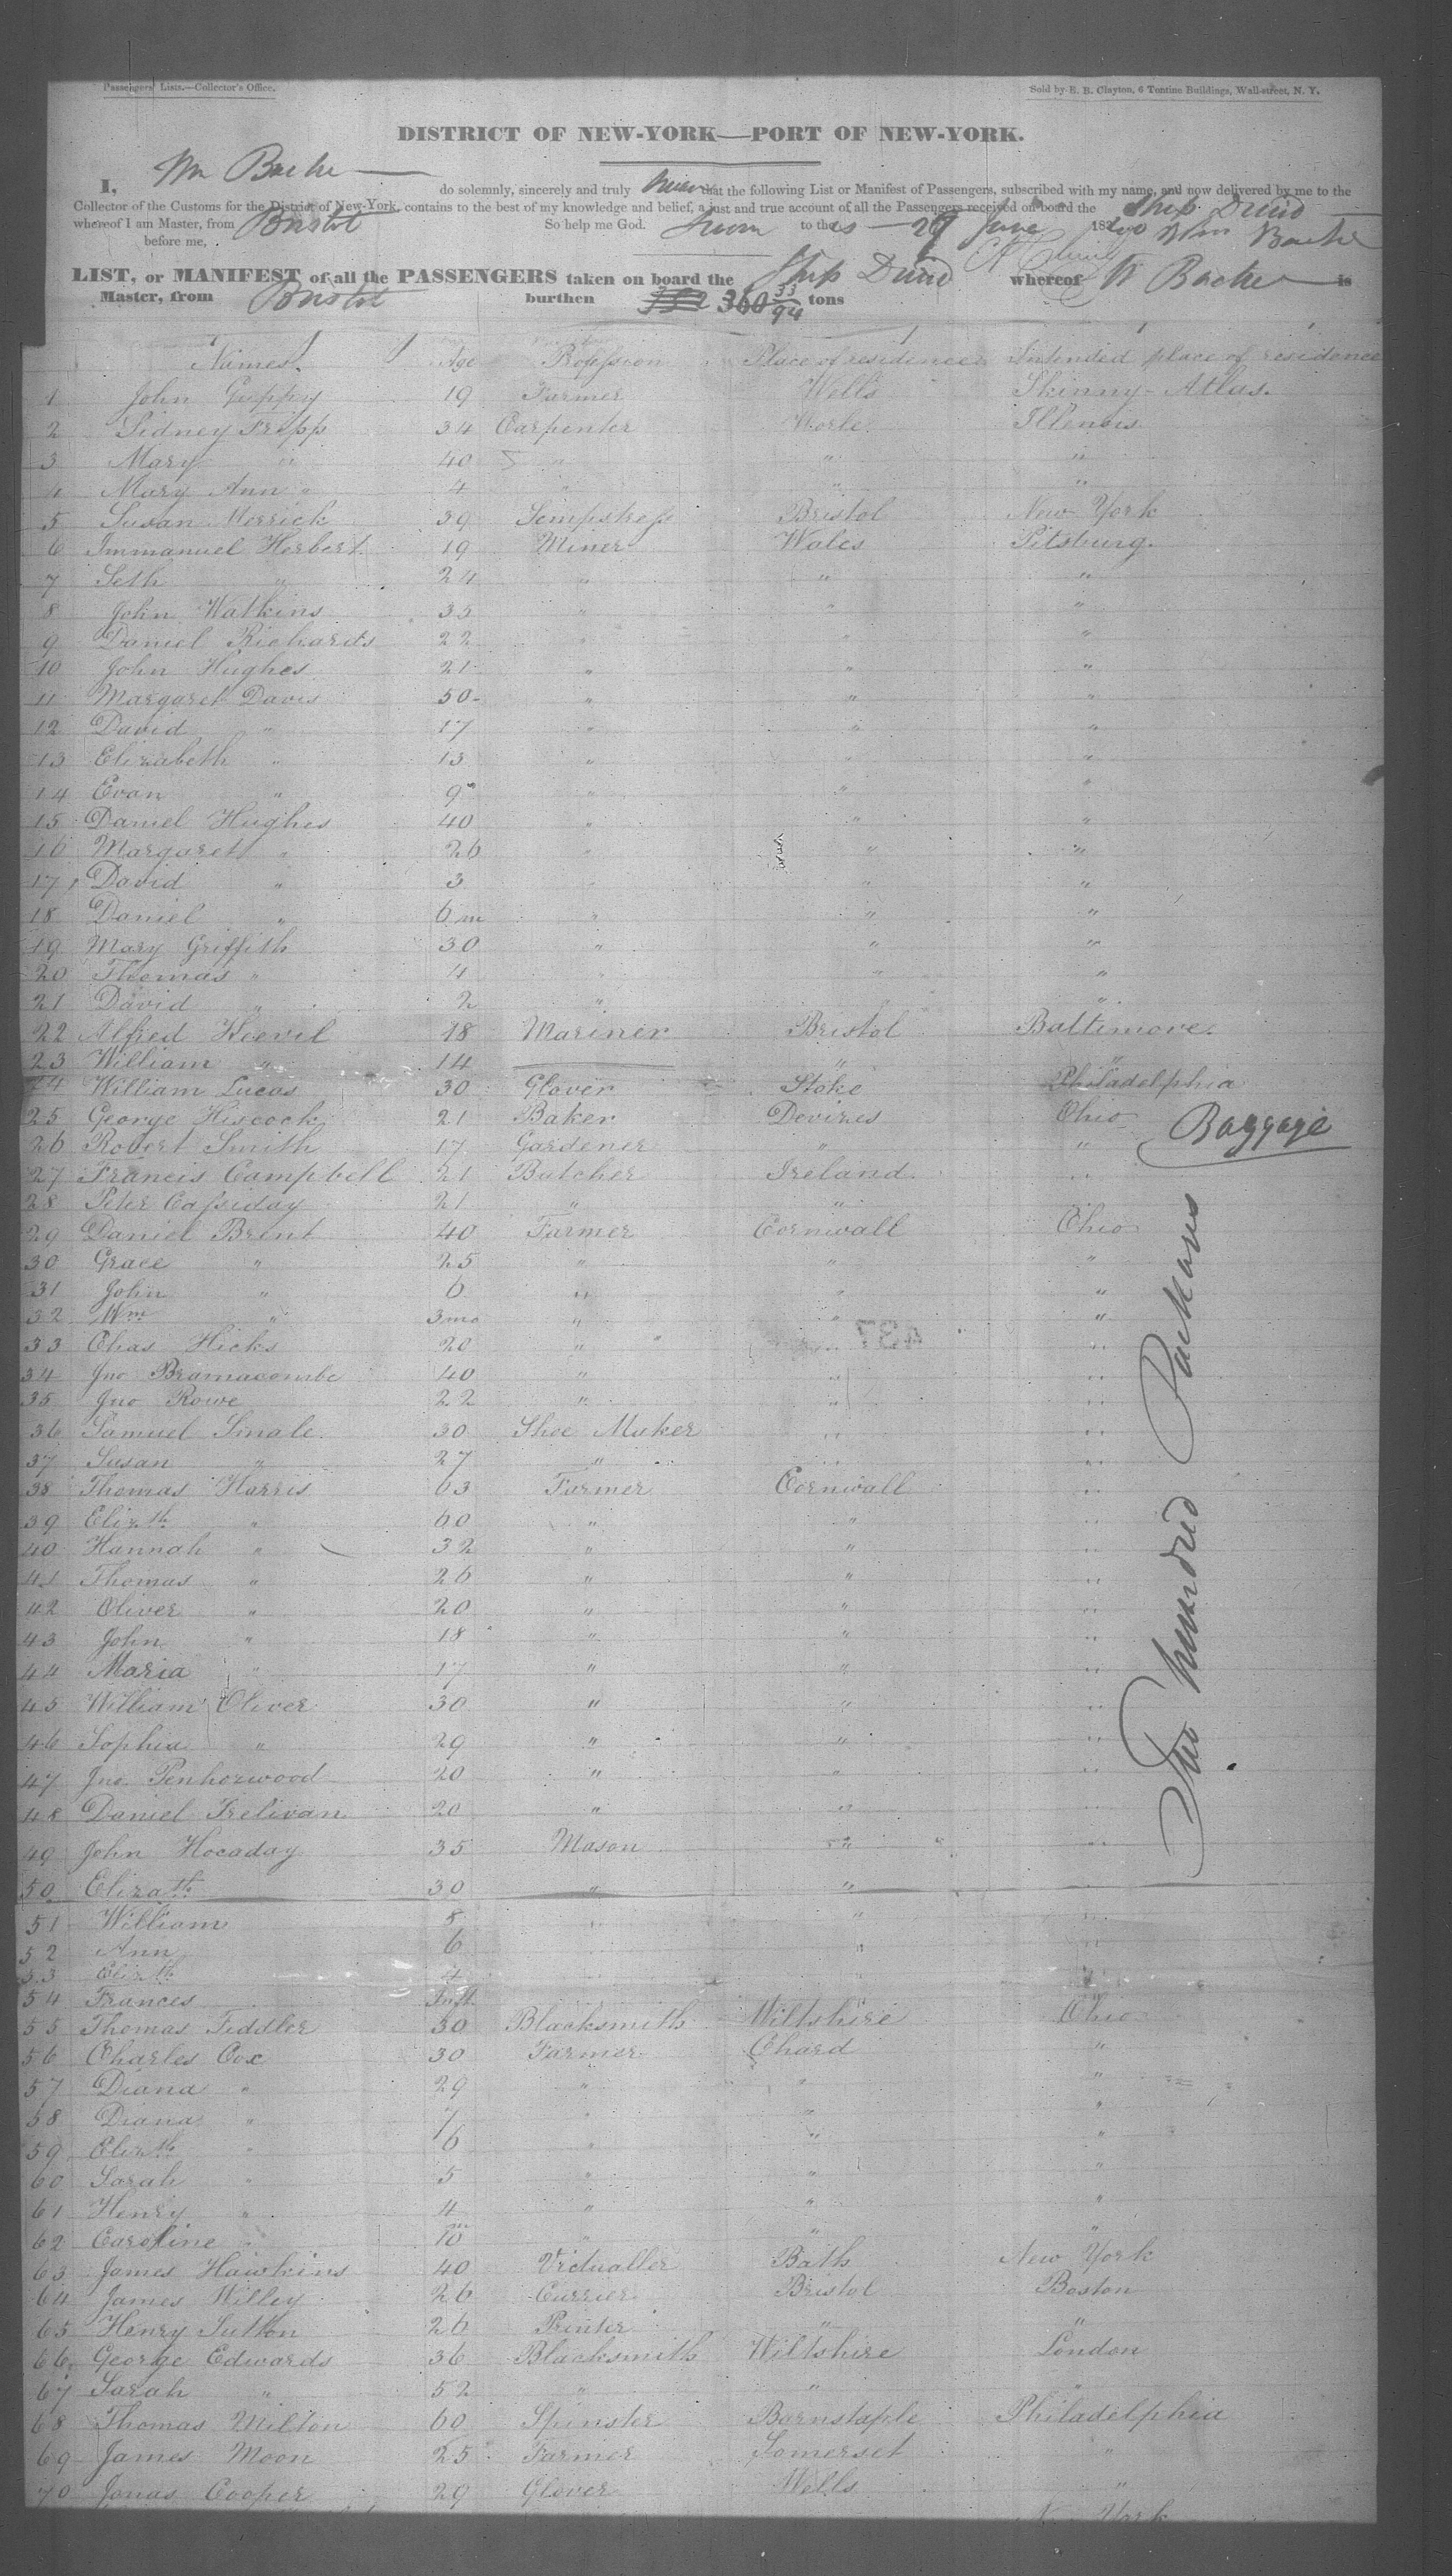 Passengers' Lists.—Collector's Office.
Sold by E. B. Clayton, 6 Tontine Buildings, Wall-street, N. Y.
DISTRICT OF NEW-YORK—PORT OF NEW-YORK.
I, Wm Bache do solemnly, sincerely and truly swear that the following List or Manifest of Passengers, subscribed with my name, and now delivered by me to the
Collector of the Customs for the District of New-York, contains to the best of my knowledge and belief, a just and true account of all the Passengers received on board the Ship Druid
whereof I am Master, from Bristol So help me God. Sworn to this 29 June 18 Wm Bache
before me,
LIST, or MANIFEST of all the PASSENGERS taken on board the Ship Druid whereof W Bache is
Master, from Bristol burthen 360 33/94 tons
Names. Age Profession Place of residence Intended place of residence
1 John Guppy 19 Farmer Wells Skinny-Atlas.
2 Sidney Fripp 34 Carpenter Worle Illenois
3 Mary " 40 " " "
4 Mary Ann " 4 " " "
5 Susan Merrick 39 Sempstress Bristol New York
6 Immanuel Herbert 19 Miner Wales Pitsburg.
7 Seth " 24 " " "
8 John Watkins 35 " " "
9 Daniel Richards 22 " " "
10 John Hughes 21 " " "
11 Margaret Davis 50 " " "
12 David " 17 " " "
13 Elizabeth " 13 " " "
14 Evan " 9 " " "
15 Daniel Hughes 40 " " "
16 Margaret " 26 " " "
17 David " 3 " " "
18 Daniel " 6 m " " "
19 Mary Griffith 30 " " "
20 Thomas " 4 " " "
21 David " 2 " "
22 Alfred Keevil 18 Mariner Bristol Baltimore.
23 William " 14 — " "
24 William Lucas 30 Glover Stoke Philadelphia
25 George Hiscock 21 Baker Devizes Ohio
Baggage
26 Robert Smith 17 Gardener " "
27 Francis Campbell 21 Butcher Ireland "
28 Peter Cassiday 21 " "
29 Daniel Brent 40 Farmer Cornwall Ohio
30 Grace " 25 " " "
31 John " 6 " " "
32 Wm " 3 mo " " "
33 Chas Hicks 20 " "
437
34 Jno Bramacombe 40 " " "
35 Jno Rowe 22 " " "
36 Samuel Sinale 30 Shoe Maker " "
37 Susan " 27 " " "
38 Thomas Harris 63 Farmer Cornwall "
39 Elizth " 60 " " "
40 Hannah " 32 " " "
41 Thomas " 26 " " "
42 Oliver " 20 " " "
43 John " 18 " " "
44 Maria " 17 " " "
45 William Oliver 30 " " "
46 Sophia " 29 " " "
47 Jno Penhorwood 20 " " "
48 Daniel Trelivan 20 " " "
49 John Hocaday 35 Mason " "
Two hundred Packages
50 Elizath 30 " " "
51 William 8 " " "
52 Ann 6 " "
53 Elizth 4 " "
54 Frances Inft
55 Thomas Fiddler 30 Blacksmith Wiltshire Ohio
56 Charles Cox 30 Farmer Chard "
57 Diana " 29 " " "
58 Diana " 7 " " "
59 Elizth " 6 " " "
60 Sarah " 5 " " "
61 Henry " 4 " " "
62 Caroline " 10 m " " "
63 James Hawkins 40 Victualler Bath New York
64 James Willey 26 Currier Bristol Boston
65 Henry Sutton 26 Printer " "
66 George Edwards 36 Blacksmith Wiltshire London
67 Sarah " 52 " " "
68 Thomas Milton 60 Spinster Barnstaple Philadelphia
69 James Moon 25 Farmer Somerset "
70 Jonas Cooper 29 Glover Wells "
York